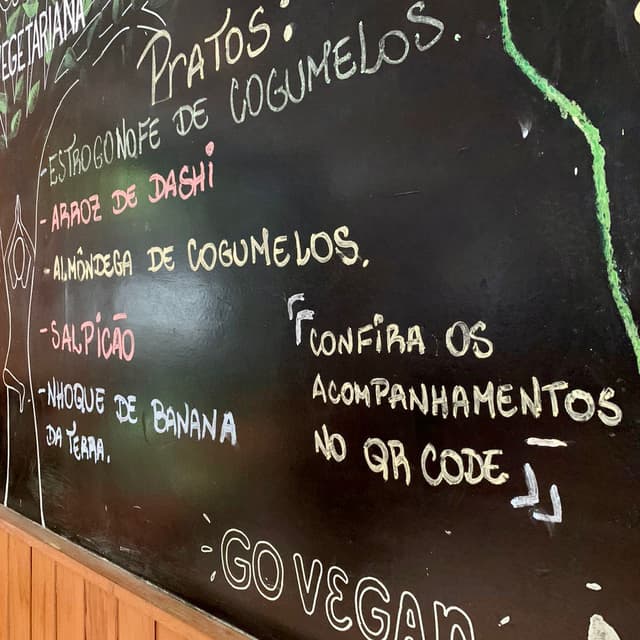 VEGETARIANA
PRATOS:
-ESTROGONOFE DE COGUMELOS.
-ARROZ DE DASHI
-ALMÔNDEGA DE COGUMELOS.
-SALPICÃO
-NHOQUE DE BANANA
DA TERRA.
CONFIRA OS
ACOMPANHAMENTOS
NO QR CODE
GO VEGAN